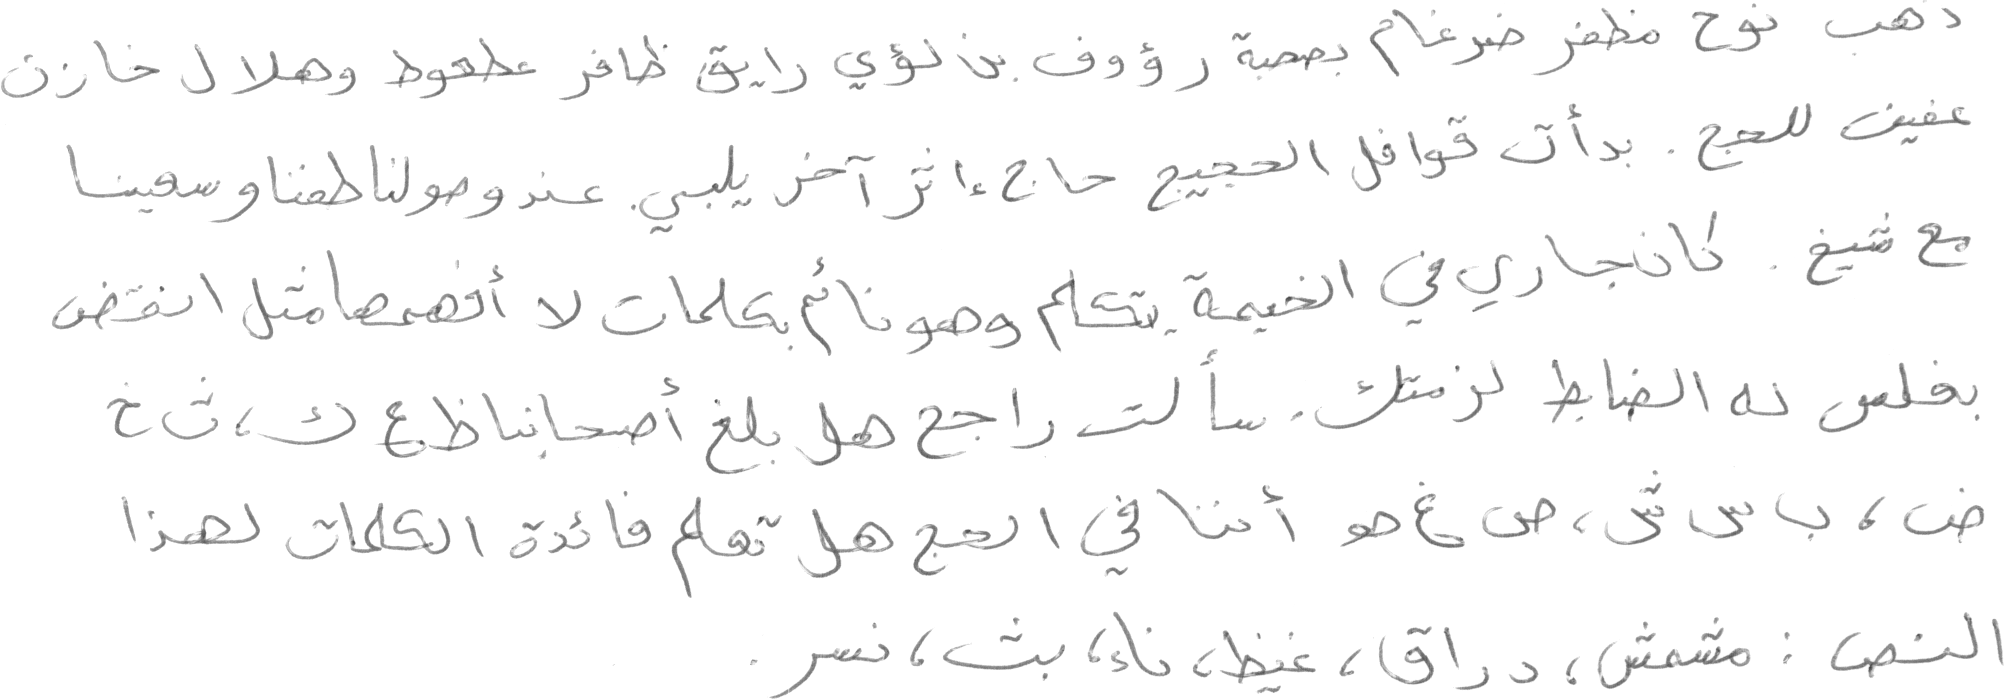 ذهب نوح مظفر ضرغام بصحبة رؤوف بن لؤي رايق ظافر عطعوط وهلال خازن
عفيف للحج. بدأت قوافل الحجيج حاج إثر آخر يلبي. عند وصولنا طفنا وسعينا
مع شيخ. كان جاري في الخيمة يتكلم وهو نائم بكلمات لا أفهمها مثل انقض
بغلس له الضابط لزمتك. سألت راجح هل بلغ أصحابنا ظ ع ك، ث خ
ض، ب س ش، ص غ هو أننا في الحج هل تعلم فائدة الكلمات لهذا
النص: مشمش، دراق، غيظ، ناء، بث، نسر.